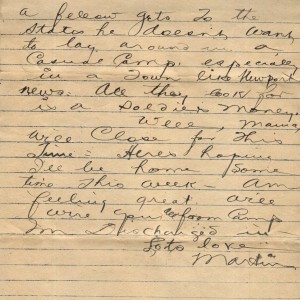 a fellow gets to the
State he doesn't want
to lay around in a
Casual Camp. especially
in a Town like Newport
news. All they look for
is a Soldiers Money.
Well, Mama
Will Close for this
time - Heres hoping
I'll be home some
time this week - Am
feeling great. Will
wire you from Camp
I'm discharged in -
Lots love.
Martin